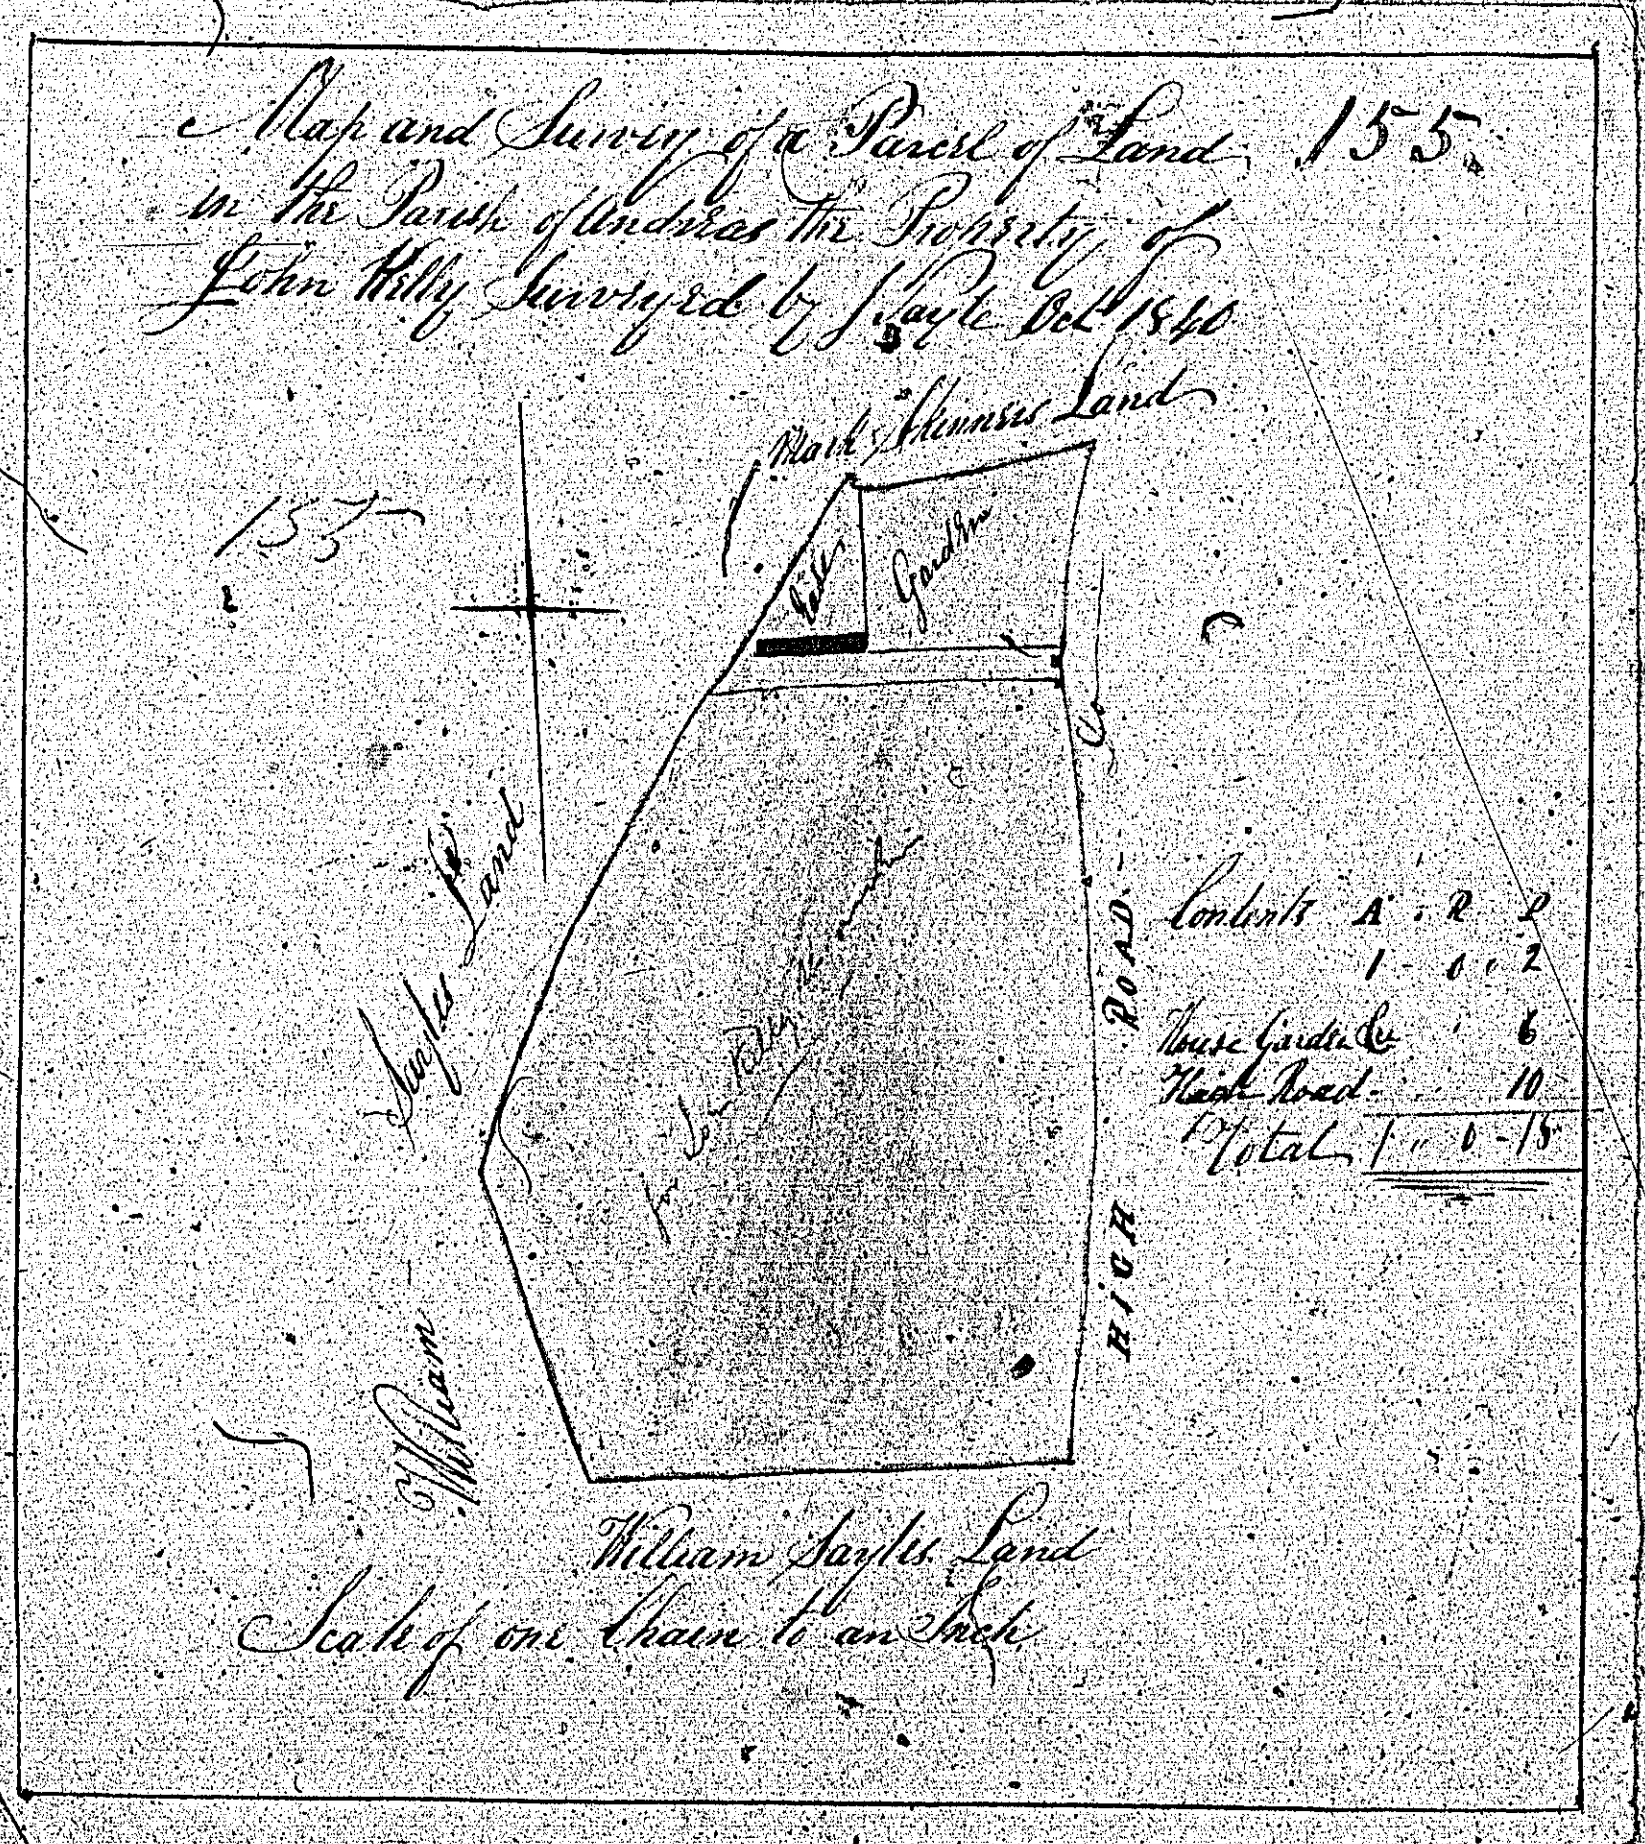 Map and Survey of a Parcel of Land 155
in the Parish of Andreas the Property of
John Kelly Surveyed by J Sayle Oct 1840
Mark Skinners Land
155
Garden
William Sayles Land
HIGH ROAD
Contents A . R P
1 - 0 . 2
House Garden &c 6
High Road - 10
Total 1 .. 0 - 18
William Sayles Land
Scale of one Chain to an Inch